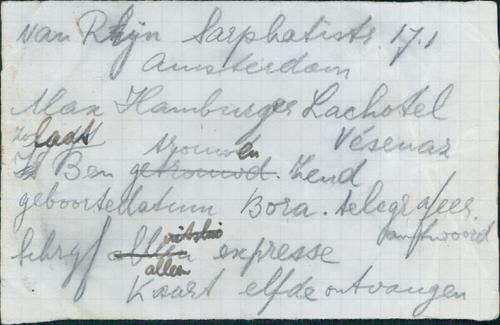 van Rhijn Sarphatistr. 17.1
Amsterdam
Max Hamburger Lachotel
Vésenaz
laat trouwen
Ik Ben getrouwd. Zend
geboortedatum Bora. telegrafeer
antwoord
schrijf uitslui
allen expresse
Kaart elfde ontvangen